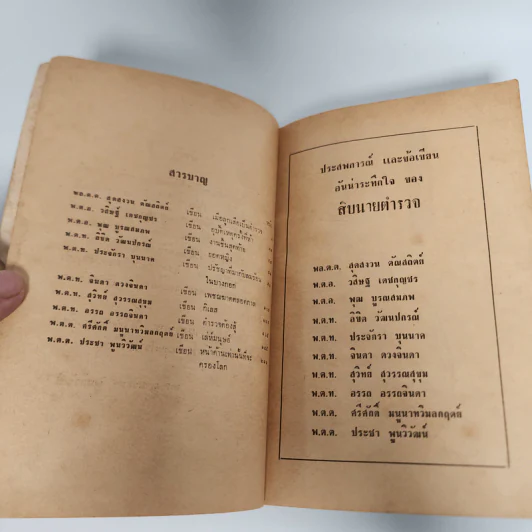 สารบาญ
พล.ต.ต. สุดสงวน ตัณสถิตย์ เขียน เมื่อลูกเดือเป็นตำรวจ
พ.ต.อ. วสิษฐ์ เดชกุญชร เขียน
พ.ต.อ. พุฒ บูรณสมภพ เขียน งานชิ้นสุดท้าย
พ.ต.ท. ลิขิต วัฒนปกรณ์ เขียน ยอดหญิง
พ.ต.ท. ประจักรา บุนนาค เขียน
ในบางกอก
พ.ต.ท. จินดา ดวงจินดา เขียน
พ.ต.ท. สุวิทย์ สุวรรณสุขุม เขียน กิเลส
พ.ต.ท. อรรถ อรรถจินดา เขียน
พ.ต.ต. ศรีศักดิ์ มนูนาทวิมลกฤตย์ เขียน เล่ห์มนุษย์
พ.ต.ต. ประชา พูนวิวัฒน์ เขียน
ครองโลก
ประสพการณ์ และข้อเขียน
อันน่าระทึกใจ ของ
สิบนายตำรวจ
พล.ต.ต. สุดสงวน ตัณสถิตย์
พ.ต.อ. วสิษฐ์ เดชกุญชร
พ.ต.อ. พุฒ บูรณสมภพ
พ.ต.ท. ลิขิต วัฒนปกรณ์
พ.ต.ท. ประจักรา บุนนาค
พ.ต.ท. จินดา ดวงจินดา
พ.ต.ท. สุวิทย์ สุวรรณสุขุม
พ.ต.ท. อรรถ อรรถจินดา
พ.ต.ต. ศรีศักดิ์ มนูนาทวิมลกฤตย์
พ.ต.ต. ประชา พูนวิวัฒน์